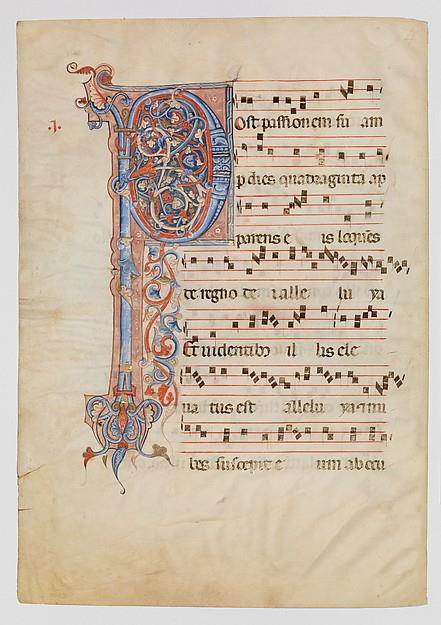 .I.
Ost passionem su am
p dies quadraginta ap
parens e is loques
de regno de i alle lu ya
Et uidentib9 il lis ele
ua tus est allelu ya
bes suscepit e um ab ocu